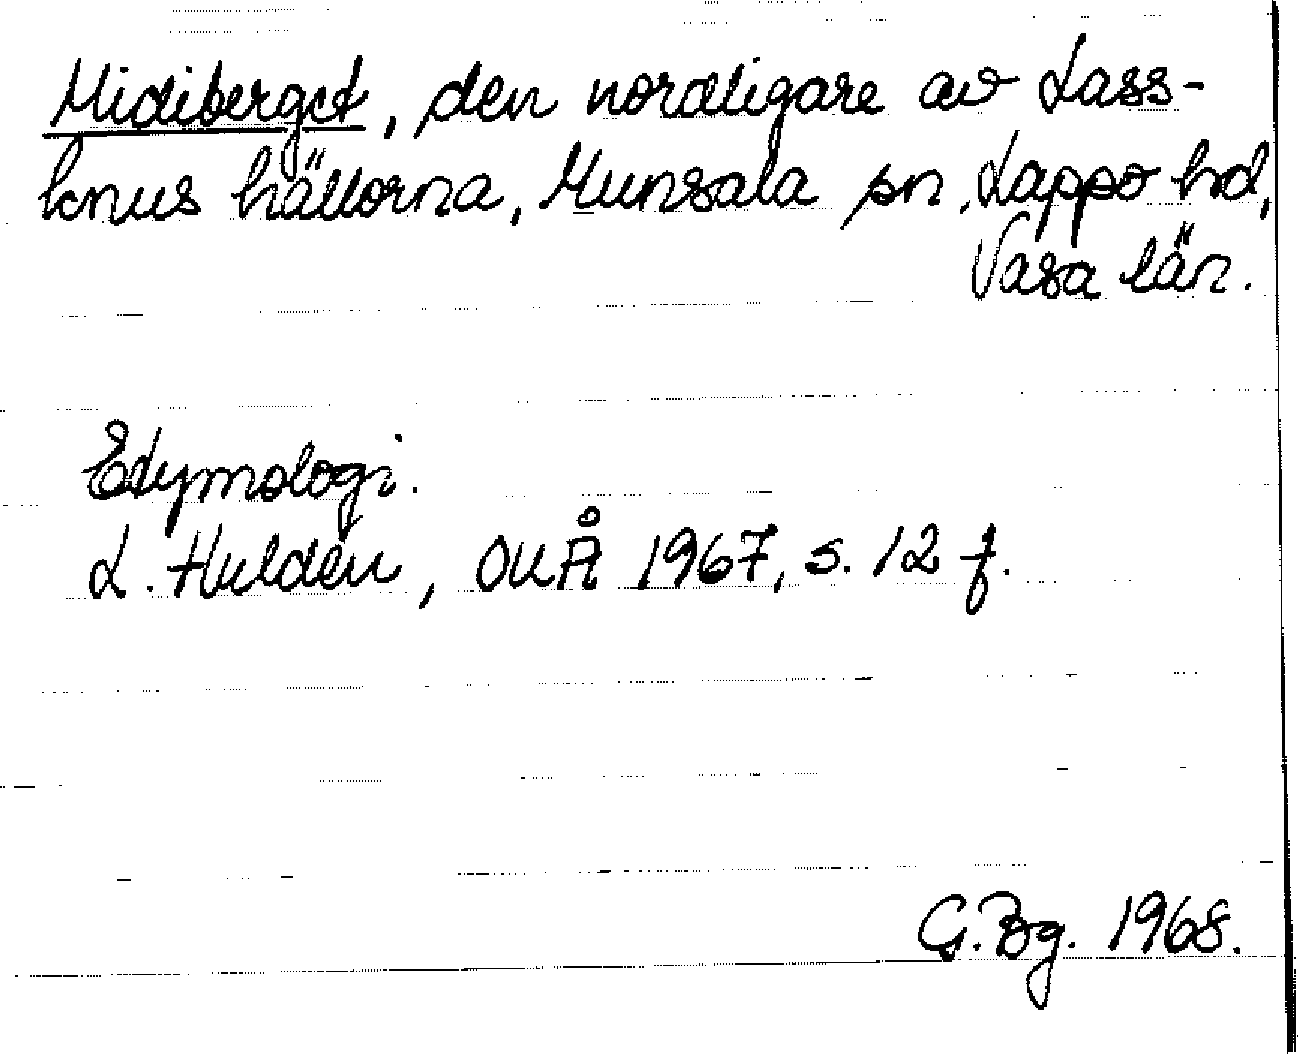 Midiberget, den nordligare av Lass-
knus hällorna, Munsala sn, Lappo hd,
Vasa län.
Etymologi.
L. Huldén, OUÅ 1967, s. 12 f.
G. Bg. 1968.